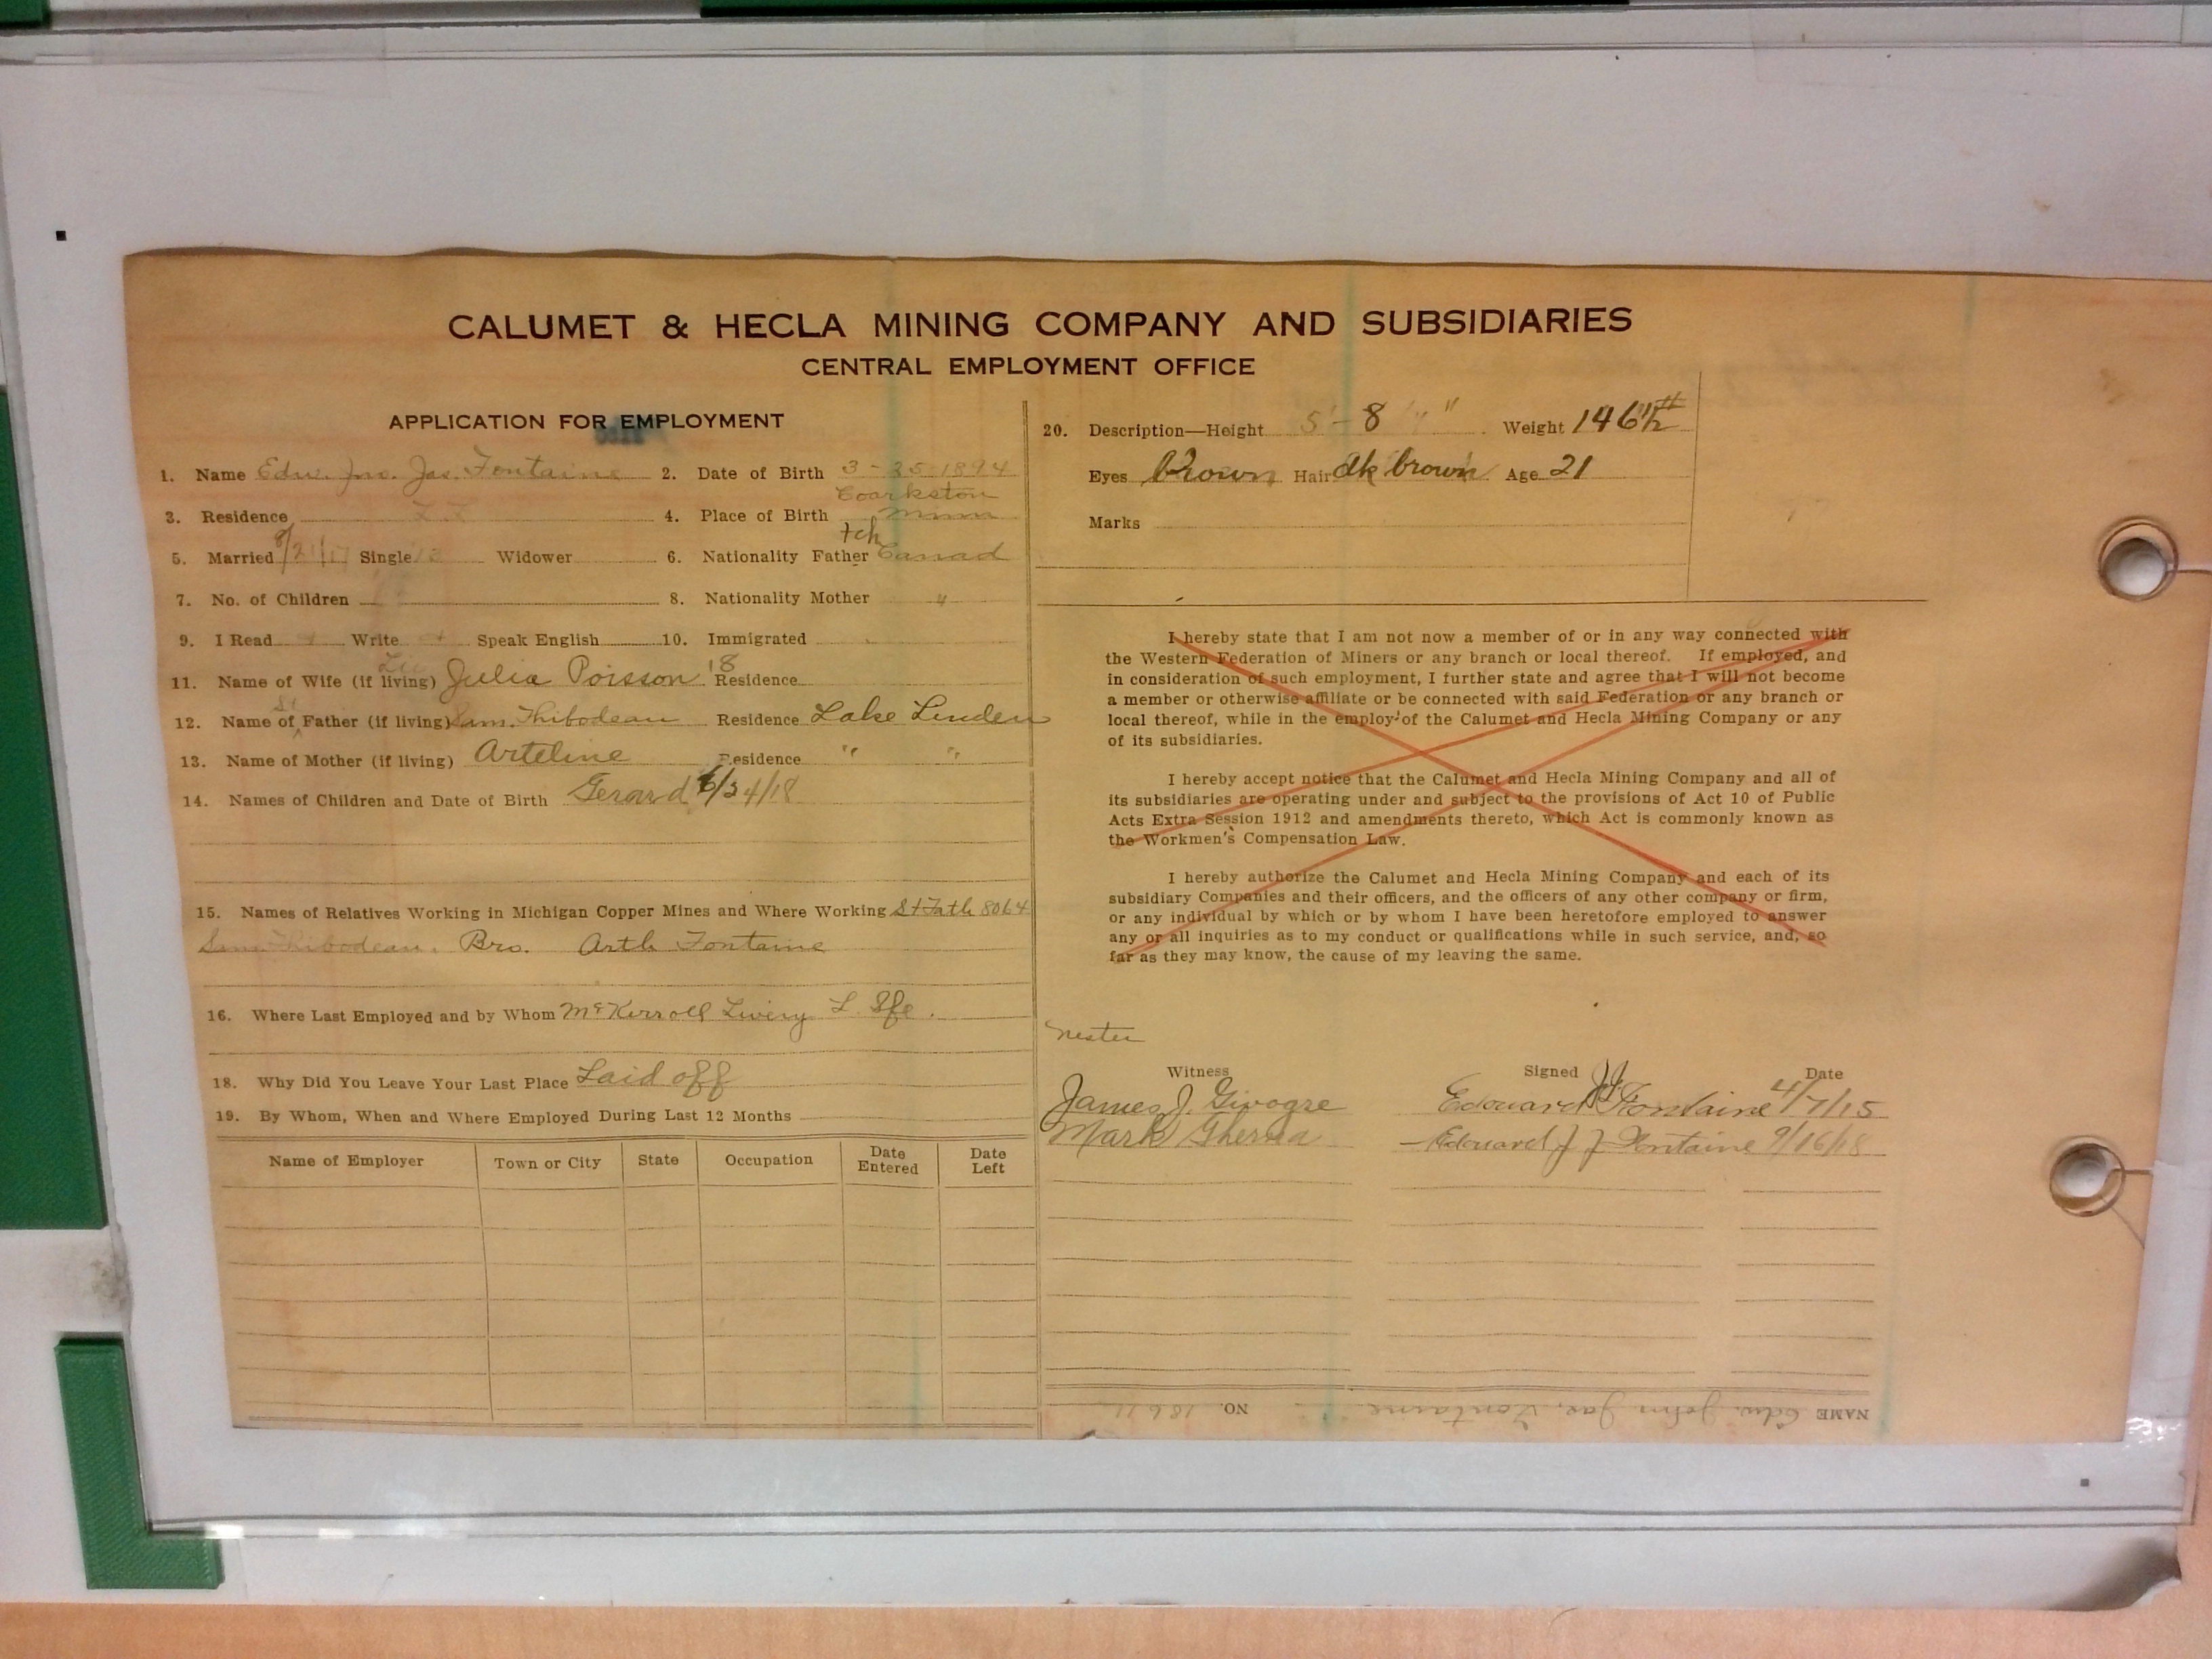 CALUMET & HECLA MINING COMPANY AND SUBSIDIARIES
CENTRAL EMPLOYMENT OFFICE
APPLICATION FOR EMPLOYMENT
1. Name Edw. Jno. Jas. Fontaine 2. Date of Birth 3-25-1894
3. Residence L.L. 4. Place of Birth Coarkston Minn
5. Married 8/21/17 Single Widower 6. Nationality Father Fch Canad
7. No. of Children 8. Nationality Mother "
9. I Read Write Speak English 10. Immigrated
11. Name of Wife (if living) Julia Poisson '18 Residence
12. Name of St Father (if living) Sam. Thibodeau Residence Lake Linden
13. Name of Mother (if living) Arteline Residence " "
14. Names of Children and Date of Birth Gerard 6/24/18
15. Names of Relatives Working in Michigan Copper Mines and Where Working St Fath 8064
Sam Thibodeau. Bro. Arth Fontaine
16. Where Last Employed and by Whom McKerroll Livery L.
18. Why Did You Leave Your Last Place Laid off
19. By Whom, When and Where Employed During Last 12 Months
Name of Employer Town or City State Occupation Date Entered Date Left
20. Description—Height 5'-8 1/4" Weight 146 1/2 #
Eyes brown Hair dk brown Age 21
Marks
I hereby state that I am not now a member of or in any way connected with
the Western Federation of Miners or any branch or local thereof. If employed, and
in consideration of such employment, I further state and agree that I will not become
a member or otherwise affiliate or be connected with said Federation or any branch or
local thereof, while in the employ of the Calumet and Hecla Mining Company or any
of its subsidiaries.
I hereby accept notice that the Calumet and Hecla Mining Company and all of
its subsidiaries are operating under and subject to the provisions of Act 10 of Public
Acts Extra Session 1912 and amendments thereto, which Act is commonly known as
the Workmen's Compensation Law.
I hereby authorize the Calumet and Hecla Mining Company and each of its
subsidiary Companies and their officers, and the officers of any other company or firm,
or any individual by which or by whom I have been heretofore employed to answer
any or all inquiries as to my conduct or qualifications while in such service, and, so
far as they may know, the cause of my leaving the same.
Nester
Witness Signed Date
James J. Givogre Edouard J.J. Fontaine 4/7/15
Mark Edouard J J Fontaine 9/16/18
NAME Edw. John Jas. Fontaine NO. 18611